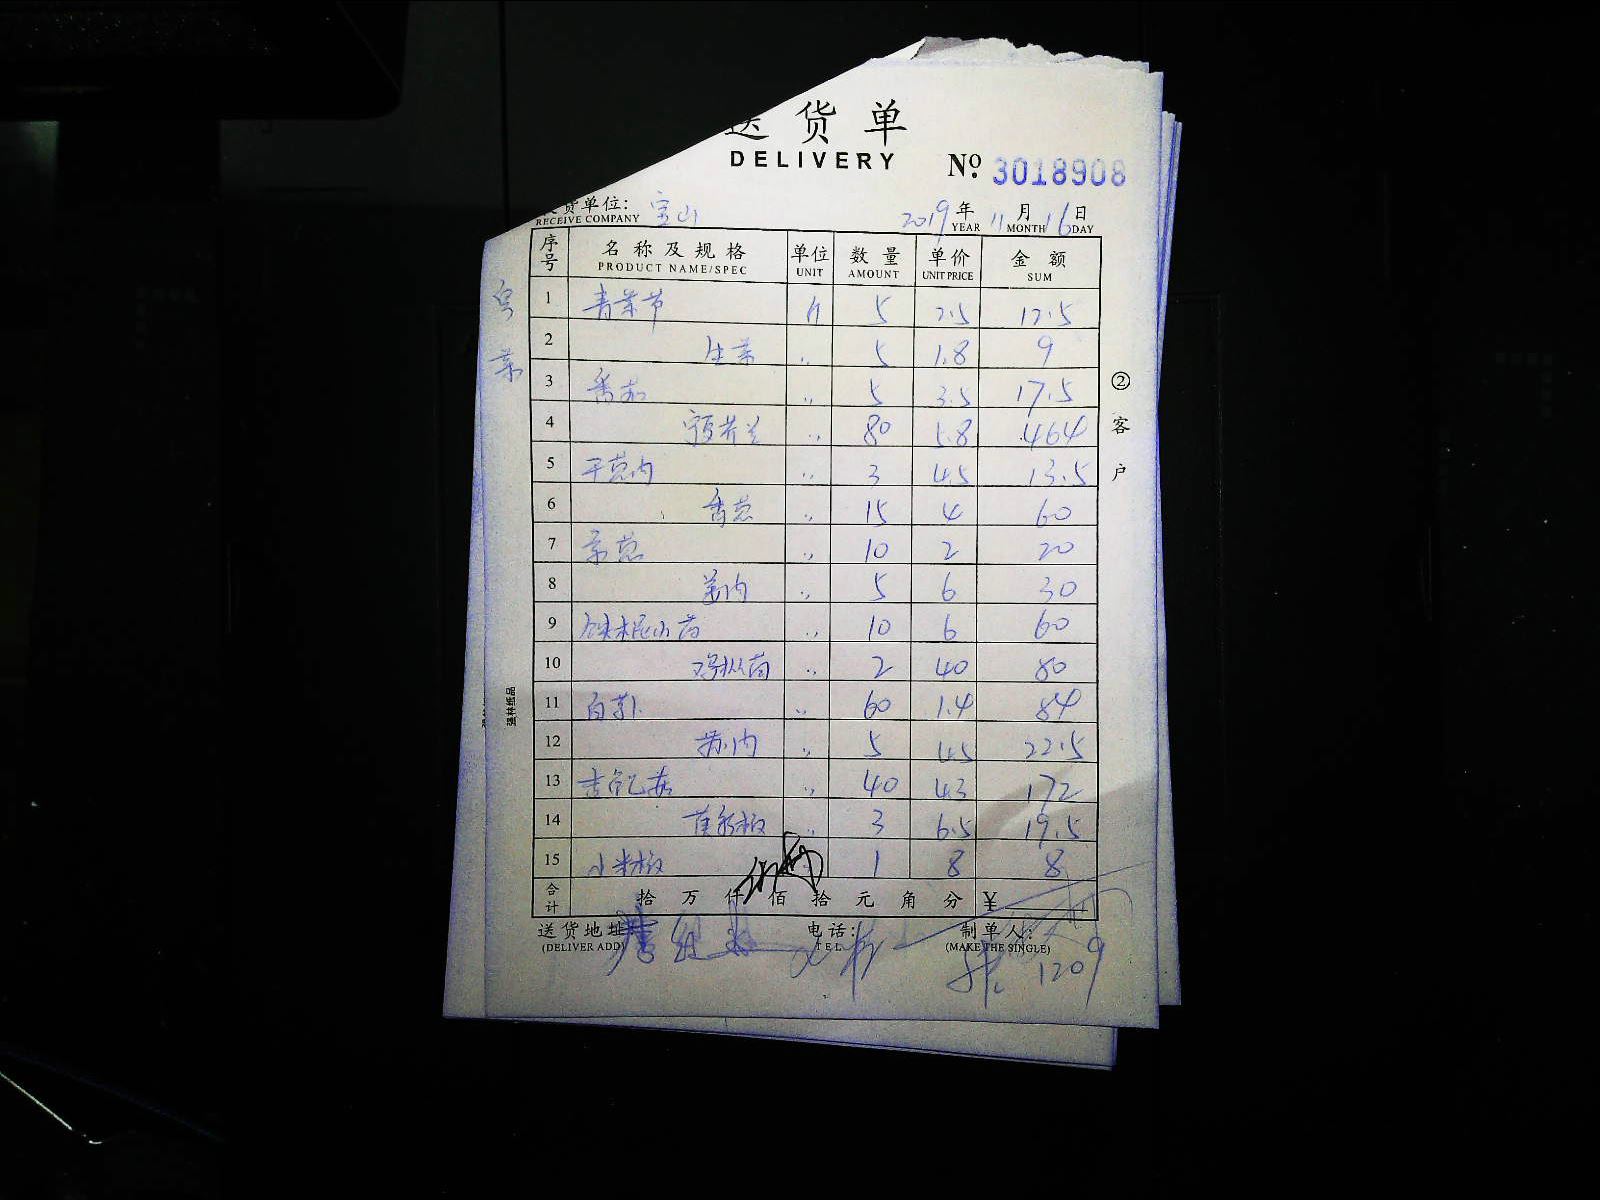 送货单
DELIVERY
No. 3018908
货单位: 宝山
RECEIVE COMPANY
2019年11月16日
YEAR MONTH DAY
序号 名称及规格 单位 数量 单价 金额
PRODUCT NAME/SPEC UNIT AMOUNT UNIT PRICE SUM
1 青菜节 斤 5 2.5 12.5
2 生菜 〃 5 1.8 9
3 番茄 〃 5 3.5 17.5
4 〃 80 5.8 464
5 干葱肉 〃 3 4.5 13.5
6 香葱 〃 15 4 60
7 京葱 〃 10 2 20
8 姜肉 〃 5 6 30
9 〃 10 6 60
10 鸡枞菌 〃 2 40 80
11 白萝卜 〃 60 1.4 84
12 苏肉 〃 5 4.5 22.5
13 〃 40 4.3 172
14 〃 3 6.5 19.5
15 小米椒 1 8 8
合计 拾 万 仟 佰 拾 元 角 分 ¥
送货地址
(DELIVER ADD)
电话:
TEL
制单人:
(MAKE THE SINGLE)
1209
②客户
强林纸品